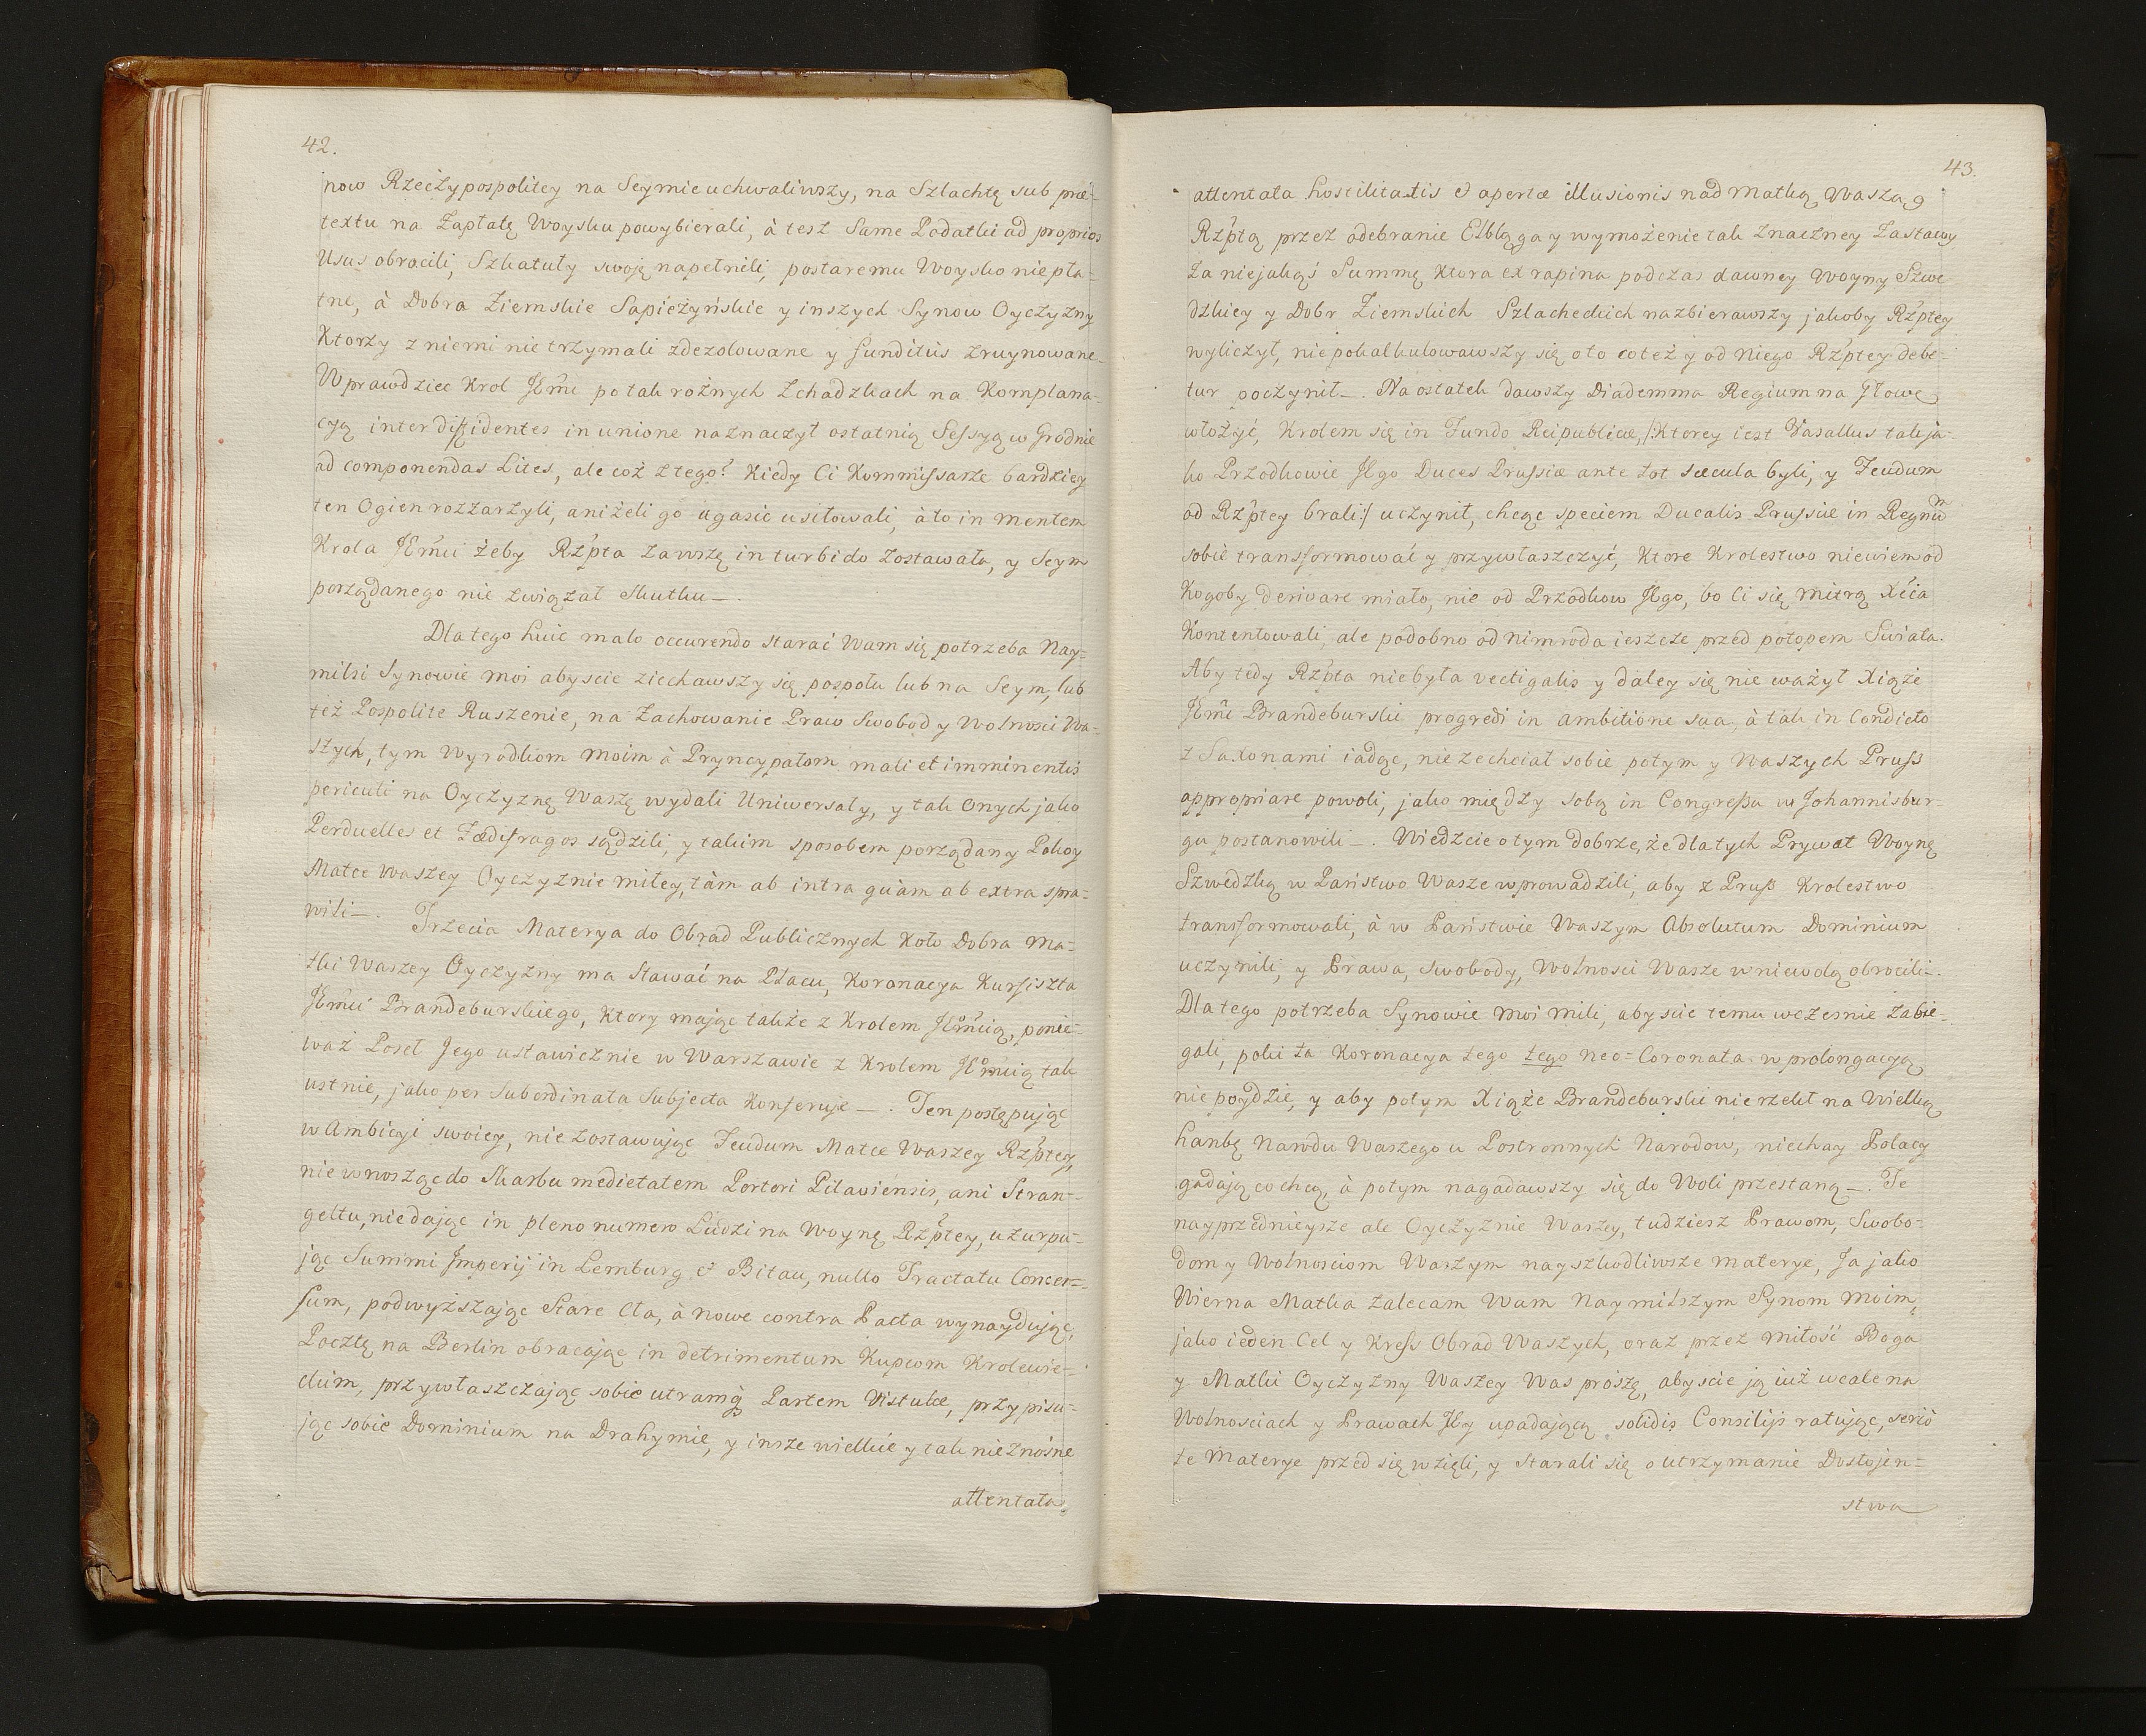 42.
now Rzeczypospolitey na Seymie uchwaliwszy, na Szlachtę sub præ-
textu na Zapłatę Woysku powybierali, à tesz Same Podatki ad proprios
Usus obrocili, Szkatuły swoję napełnili, postaremu Woysko niepła-
tne, à Dobra Ziemskie Sapieżyńskie y inszych Synow Oyczyzny
Ktorzy z niemi nie trzymali zdezolowane y funditùs zruynowane.
Wprawdziec Krol JEmć po tak rożnych Zchadzkach na Komplana-
cyą inter dissidentes in unione naznaczył ostatnią Sessyą w Grodnie
ad componendas Lites, ale coż z tego? Kiedy Ci Kommissarze bardziey
ten Ogien rozżarzyli, aniżeli go ugasic usiłowali, à to in mentem
Krola JEmci żeby Rzpta zawszę in turbido zostawała, y Seym
porządanego nie związał Skutku—.
Dlatego huic malo occurendo starać Wam się potrzeba Nay=
milsi Synowie moi abyscie ziechawszy się pospołu lub na Seym, lub
też Pospolite Ruszenie, na Zachowanie Praw Swobod y Wolnosci Wa-
szych, tym Wyrodkom moim à Pryncypałom mali et imminentis
periculi na Oyczyznę Waszę wydali Uniwersały, y tak Onych jako
Perduelles et Fœdifragos sądzili, y takim sposobem porządany Pokoy
Matce Waszey Oyczyznie miłey, tàm ab intra quàm ab extra spra=
wili—. Trzecia Materya do Obrad Publicznych Koło Dobra Ma-
tki Waszey Oyczyzny ma Stawać na Placu, Koronacya Kurfiszta
JEmci Brandeburskiego, Ktory mając także z Krolem JEmcią, ponie-
waż Poseł Jego ustawicznie w Warszawie z Krolem JEmcią tak
ustnie, jako per Subordinata Subjecta Konferuje—. Ten postępując
w Ambicyi swoiey, nie zostawując Feudum Matce Waszey Rzptey,
nie wnosząc do Skarbu medietatem Portorii Pilaviensis, ani Stran-
geltu, nie dając in pleno numero Ludzi na Woynę Rzptey, uzurpu-
jąc Summi Imperij in Lemburg & Bitau, nullo Tractatu Conces-
sum, podwyższając Stare Cła, à nowe contra Pacta wynaydując,
Pocztę na Berlin obracając in detrimentum Kupcom Krolewie-
ckim, przywłaszczając sobie utramq; Partem Vistulæ, przypisu=
jąc sobie Dominium na Drahymie, y insze wielkie y tak nieznośne
attentata
43.
attentata hostilitatis & apertæ illusionis nad Matką Waszą
Rzptą przez odebranie Elbląga y wymożenie tak znaczney Zastawy
za niejakąś Summę Ktora ex rapina podczas dawney Woyny Szwe
dzkiey y Dobr Ziemskich Szlacheckich nazbierawszy jakoby Rzptey
wyliczył, niepokalkulowawszy się oto co też y od niego Rzptey debe-
tur poczynił—. Na ostatek dawszy Diademma Regium na Głowę
włożyć, Krolem się in Fundo Reipublicæ, /:Ktorey iest Vasallus tak ja-
ko Przodkowie JEgo Duces Prussiæ ante tot sæcula byli, y Feudum
od Rzptey brali:/ uczynił, chcąc speciem Ducalis Prussiæ in Regnum
sobie transformować y przywłaszczyć, Ktore Krolestwo niewiem od
Kogoby derivare miało, nie od Przodkow JEgo, bo Ci się Mitrą Xcia
Kontentowali, ale podobno od Nimroda ieszcze przed potopem Swiata.
Aby tedy Rzpta niebyła vectigalis y daley się nie ważył Xiąże
JEmć Brandeburski progredi in ambitione sua, à tak in Condicto
z Saxonami iadąc, nie zechciał sobie potym y Waszych Pruss
appropriare powoli, jako między sobą in Congressu w Johannisbur-
gu postanowili—. Wiedzcie o tym dobrze, że dla tych Prywat Woynę
Szwedzką w Państwo Wasze wprowadzili, aby z Pruß Krolestwo
transformowali, à w Państwie Waszym Absolutum Dominium
uczynili, y Prawa, Swobody, Wolnosci Wasze w niewolą obrocili—.
Dlatego potrzeba Synowie moi mili, abyscie temu wczesnie zabie-
gali, poki ta Koronacya tego tego neo=Coronata w prolongacyą
nie poydzie, y aby potym Xiąże Brandeburski nie rzekł na Wielką
hanbę Narodu Waszego u Postronnych Narodow, niechay Polacy
gadają co chcą, à potym nagadawszy się do Woli przestaną—. Te
nayprzednieysze ale Oyczyznie Waszey, tudziesz Prawom, Swobo-
dom y Wolnosciom Waszym nayszkodliwsze materye, Ja jako
Wierna Matka zalecam Wam Naymilszym Synom Moim,
jako ieden Cel y Kress Obrad Waszych, oraz przez miłość Boga
y Matki Oyczyzny Waszey Was proszę, abyscie ją iuż wcale na
Wolnosciach y Prawach Jey upadającą solidis Consilijs ratując, seriò
te Materye przed się wzięli, y Starali się o utrzymanie Dostojen=
stwa